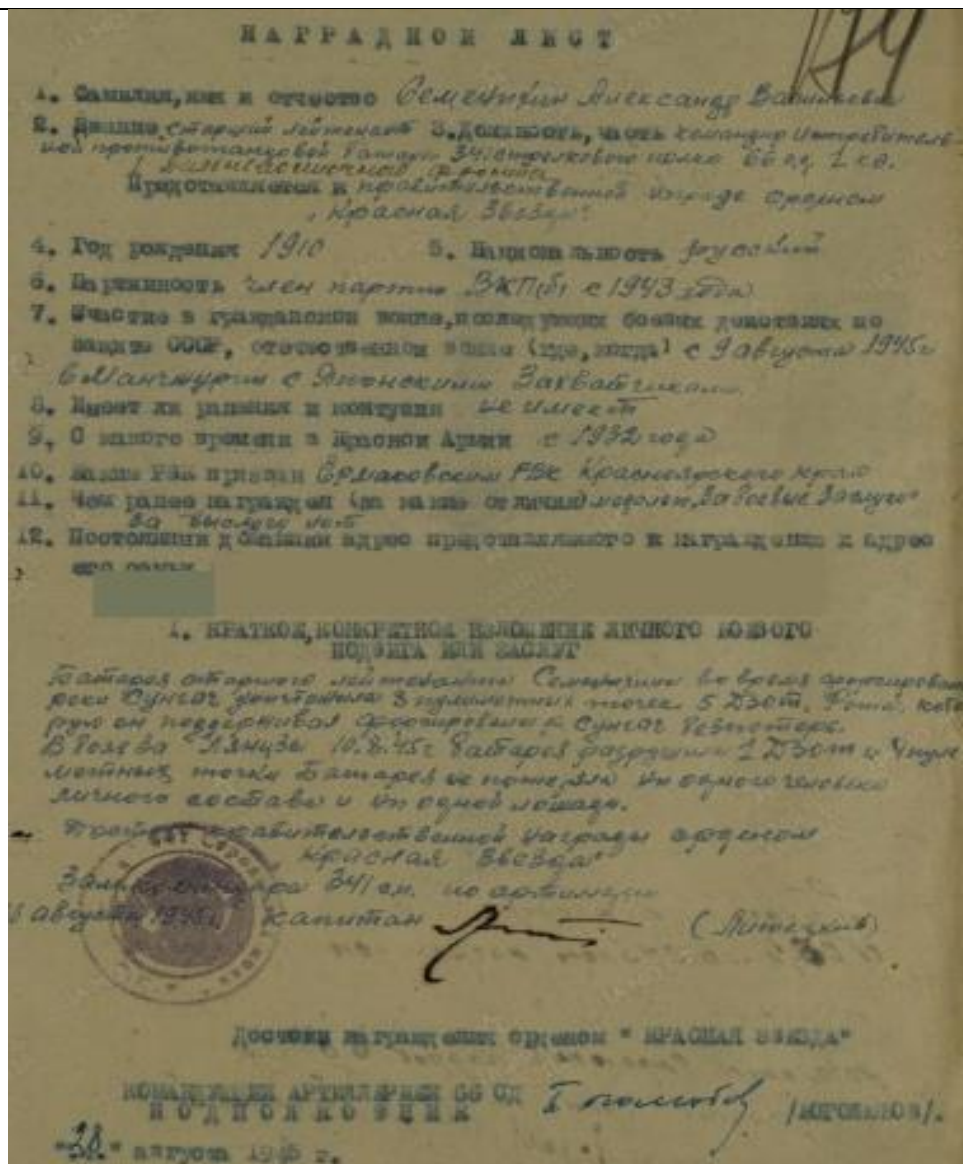 НАГРАДНОЙ ЛИСТ
1. Фамилия, имя и отчество Семенихин Александр Васильевич
2. Звание старший лейтенант 3. Должность, часть командир истребитель-
ной противотанковой батареи 341 стрелкового полка 66 сд
фронта
Представляется к правительственной награде орденом
"Красная Звезда"
4. Год рождения 1910 5. Национальность русский
6. Партийность член партии ВКП(б) с 1943 года
7. Участие в гражданской войне, последующих боевых действиях по
защите СССР, отечественной войне (где, когда) с 9 августа 1945 г
в Манчжурии с Японскими Захватчиками
8. Имеет ли ранения и контузии не имеет
9. С какого времени в Красной Армии с 1932 года
10. Каким РВК призван Ермаковским РВК Красноярского края
11. Чем ранее награжден (за какие отличия) медалью "За боевые Заслуги"
За выслугу лет
12. Постоянный домашний адрес представляемого к награждению и адрес
его семьи
1. КРАТКОЕ, КОНКРЕТНОЕ ИЗЛОЖЕНИЕ ЛИЧНОГО БОЕВОГО
ПОДВИГА ИЛИ ЗАСЛУГ
Батарея старшего лейтенанта Семенихина во время форсирования
реки Сунгач уничтожила 3 пулеметных точек 5 Дзот. Рота, кото
рую он поддерживал форсировала р. Сунгач без потерь.
В боях за 10.8.45 г батарея разрушила 1 Дзот и 4 пуле
метных точки Батарея не потеряла ни одного человека
личного состава и ни одной лошади.
правительственной награды орденом
"Красная Звезда"
Зам. командира 341 сп. по артиллерии
августа 1945 г. капитан
Достоин награждения орденом "КРАСНАЯ ЗВЕЗДА"
КОМАНДУЮЩИЙ АРТИЛЛЕРИЕЙ 66 СД
ПОДПОЛКОВНИК
"28" августа 1945 г.